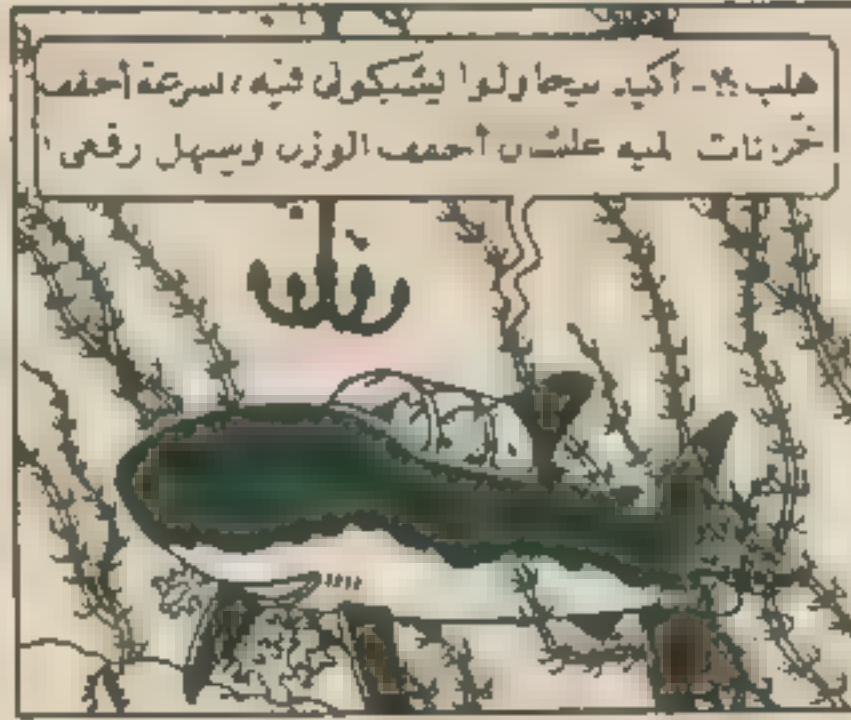 هلب ؟! - أكيد سيحاولوا يشبكوني فيه، بسرعة أخفف
خزنات المية علشان أخفف الوزن وسهل رفعي